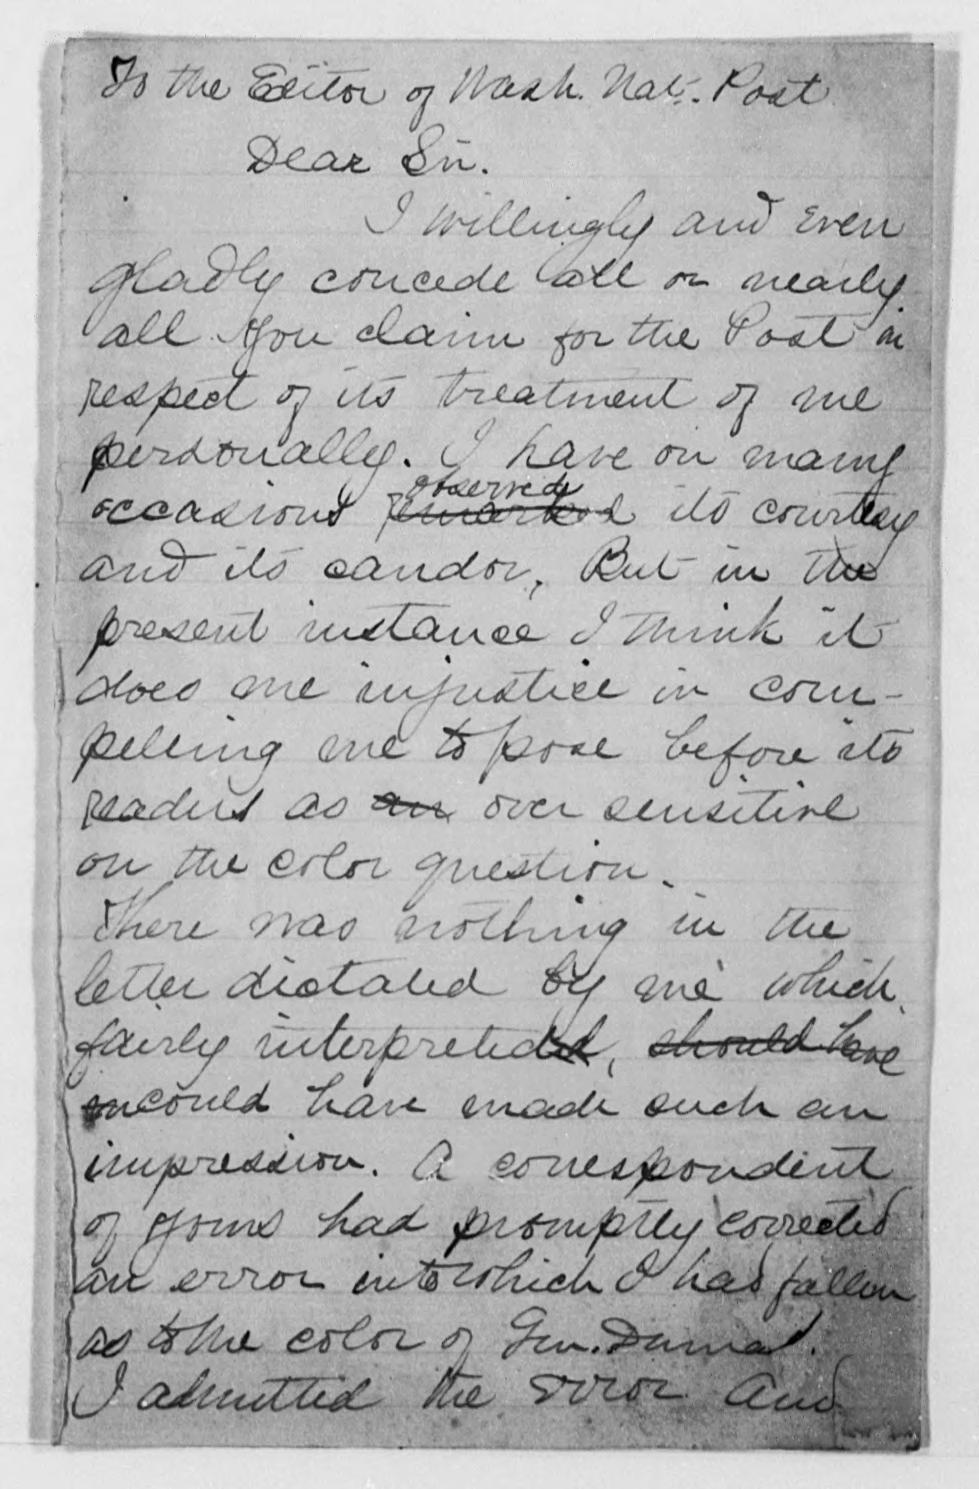 To the Editor of Wash. Nat. Post
Dear Sir.
I willingly and even
gladly concede all or nearly
all you claim for the Post in
respect of its treatment of me
personally. I have on many
observed
occasions remarked its courtesy
and its candor, But in the
present instance I think it
does me injustice in com-
pelling me to pose before its
readers as an over sensitive
on the color question.
There was nothing in the
letter dictated by me which
fairly interpreted, should have
could have made such an
impression. A correspondent
of yours had promptly corrected
an error into which I had fallen
as to the color of Gen. Dumas.
I admitted the error and